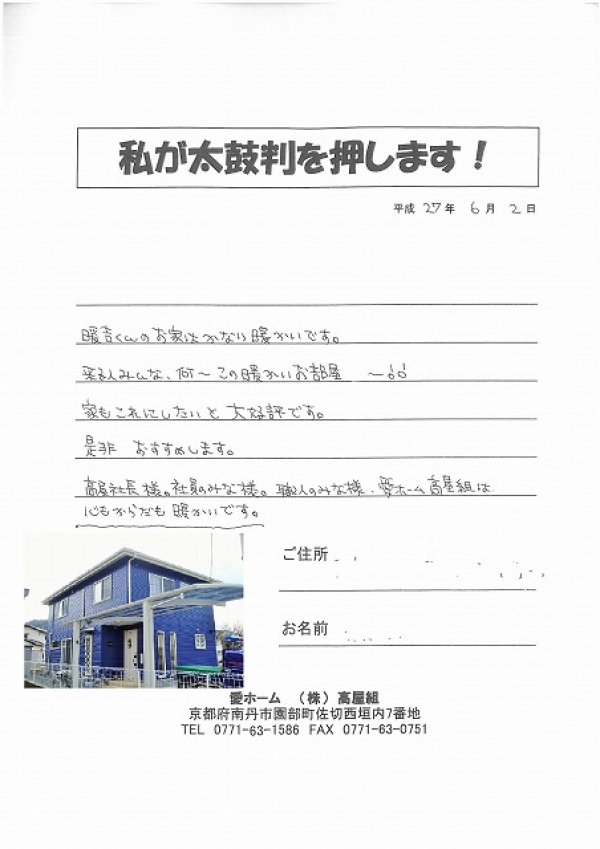 私が太鼓判を押します！
平成 27年 6月 2日
暖吉くんのお家はかない暖かいです。
来る人みんな、何～この暖かいお部屋 ～!!
家もこれにしたいと大好評です。
是非 おすすめします。
高屋社長様。社員のみな様。職人のみな様、愛ホーム高屋組は
心もからだも暖かいです。
ご住所
お名前
愛ホーム （株）高屋組
京都府南丹市園部町佐切西垣内7番地
TEL 0771-63-1586 FAX 0771-63-0751